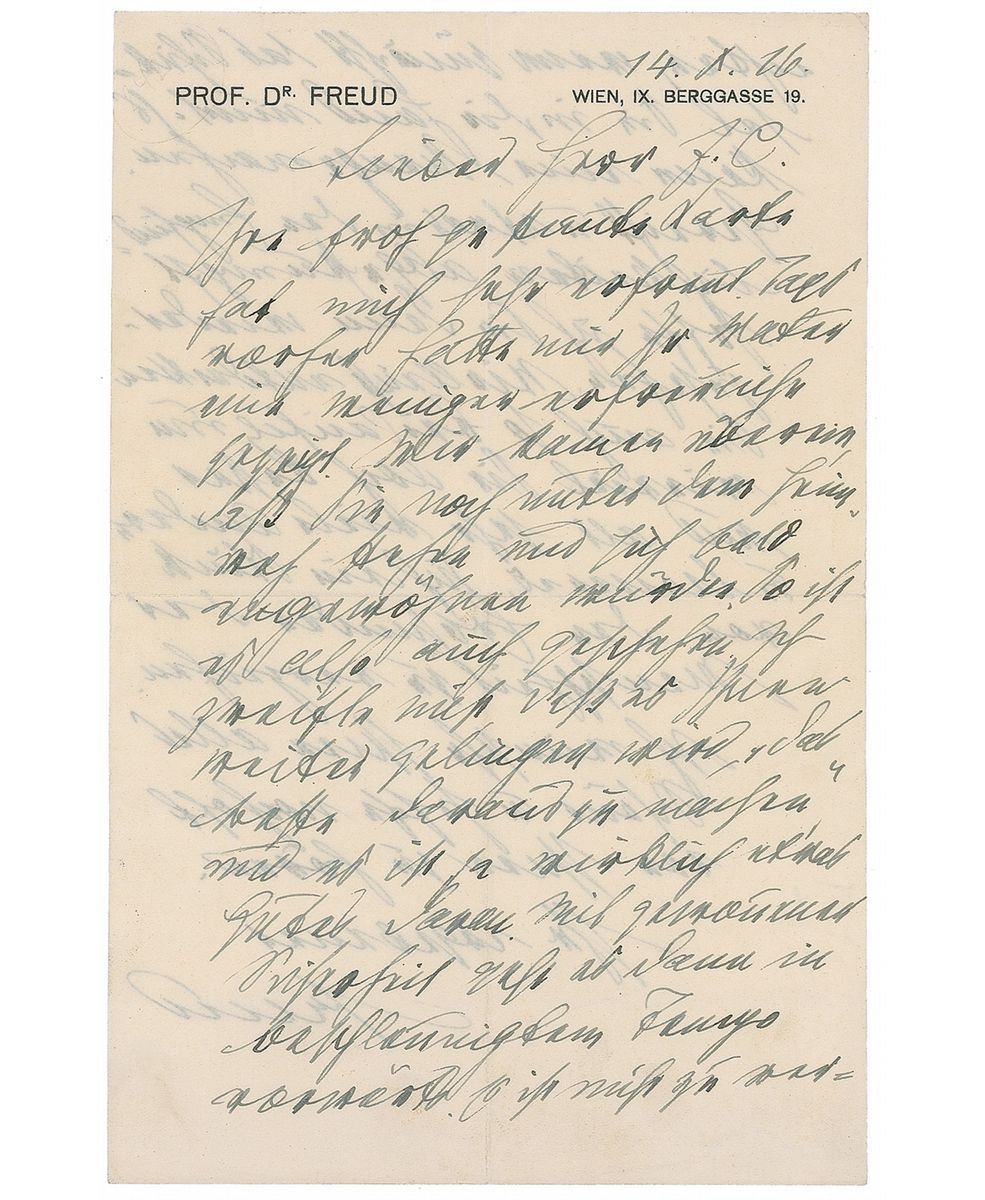 14. X. 26.
PROF. DR. FREUD
WIEN, IX. BERGGASSE 19.
Lieber Herr J. C.
Ihre froh gestimmte Karte
hat mich sehr erfreut. Tags
vorher hatte mir Ihr Vater
eine weniger erfreuliche
gezeigt. Wir kamen überein,
daß Sie noch unter dem Heim-
weh stehen und sich bald
eingewöhnen würden. So ist
es also auch geschehen. Ich
zweifle nicht daß es Ihnen
weiter gelingen wird, „das
beste daraus zu machen“
und es ist ja wirklich etwas
Gutes daran. Mit gewonnener
Sicherheit geht es dann in
beschleunigtem Tempo
vorwärts. Es ist nicht zu ver=